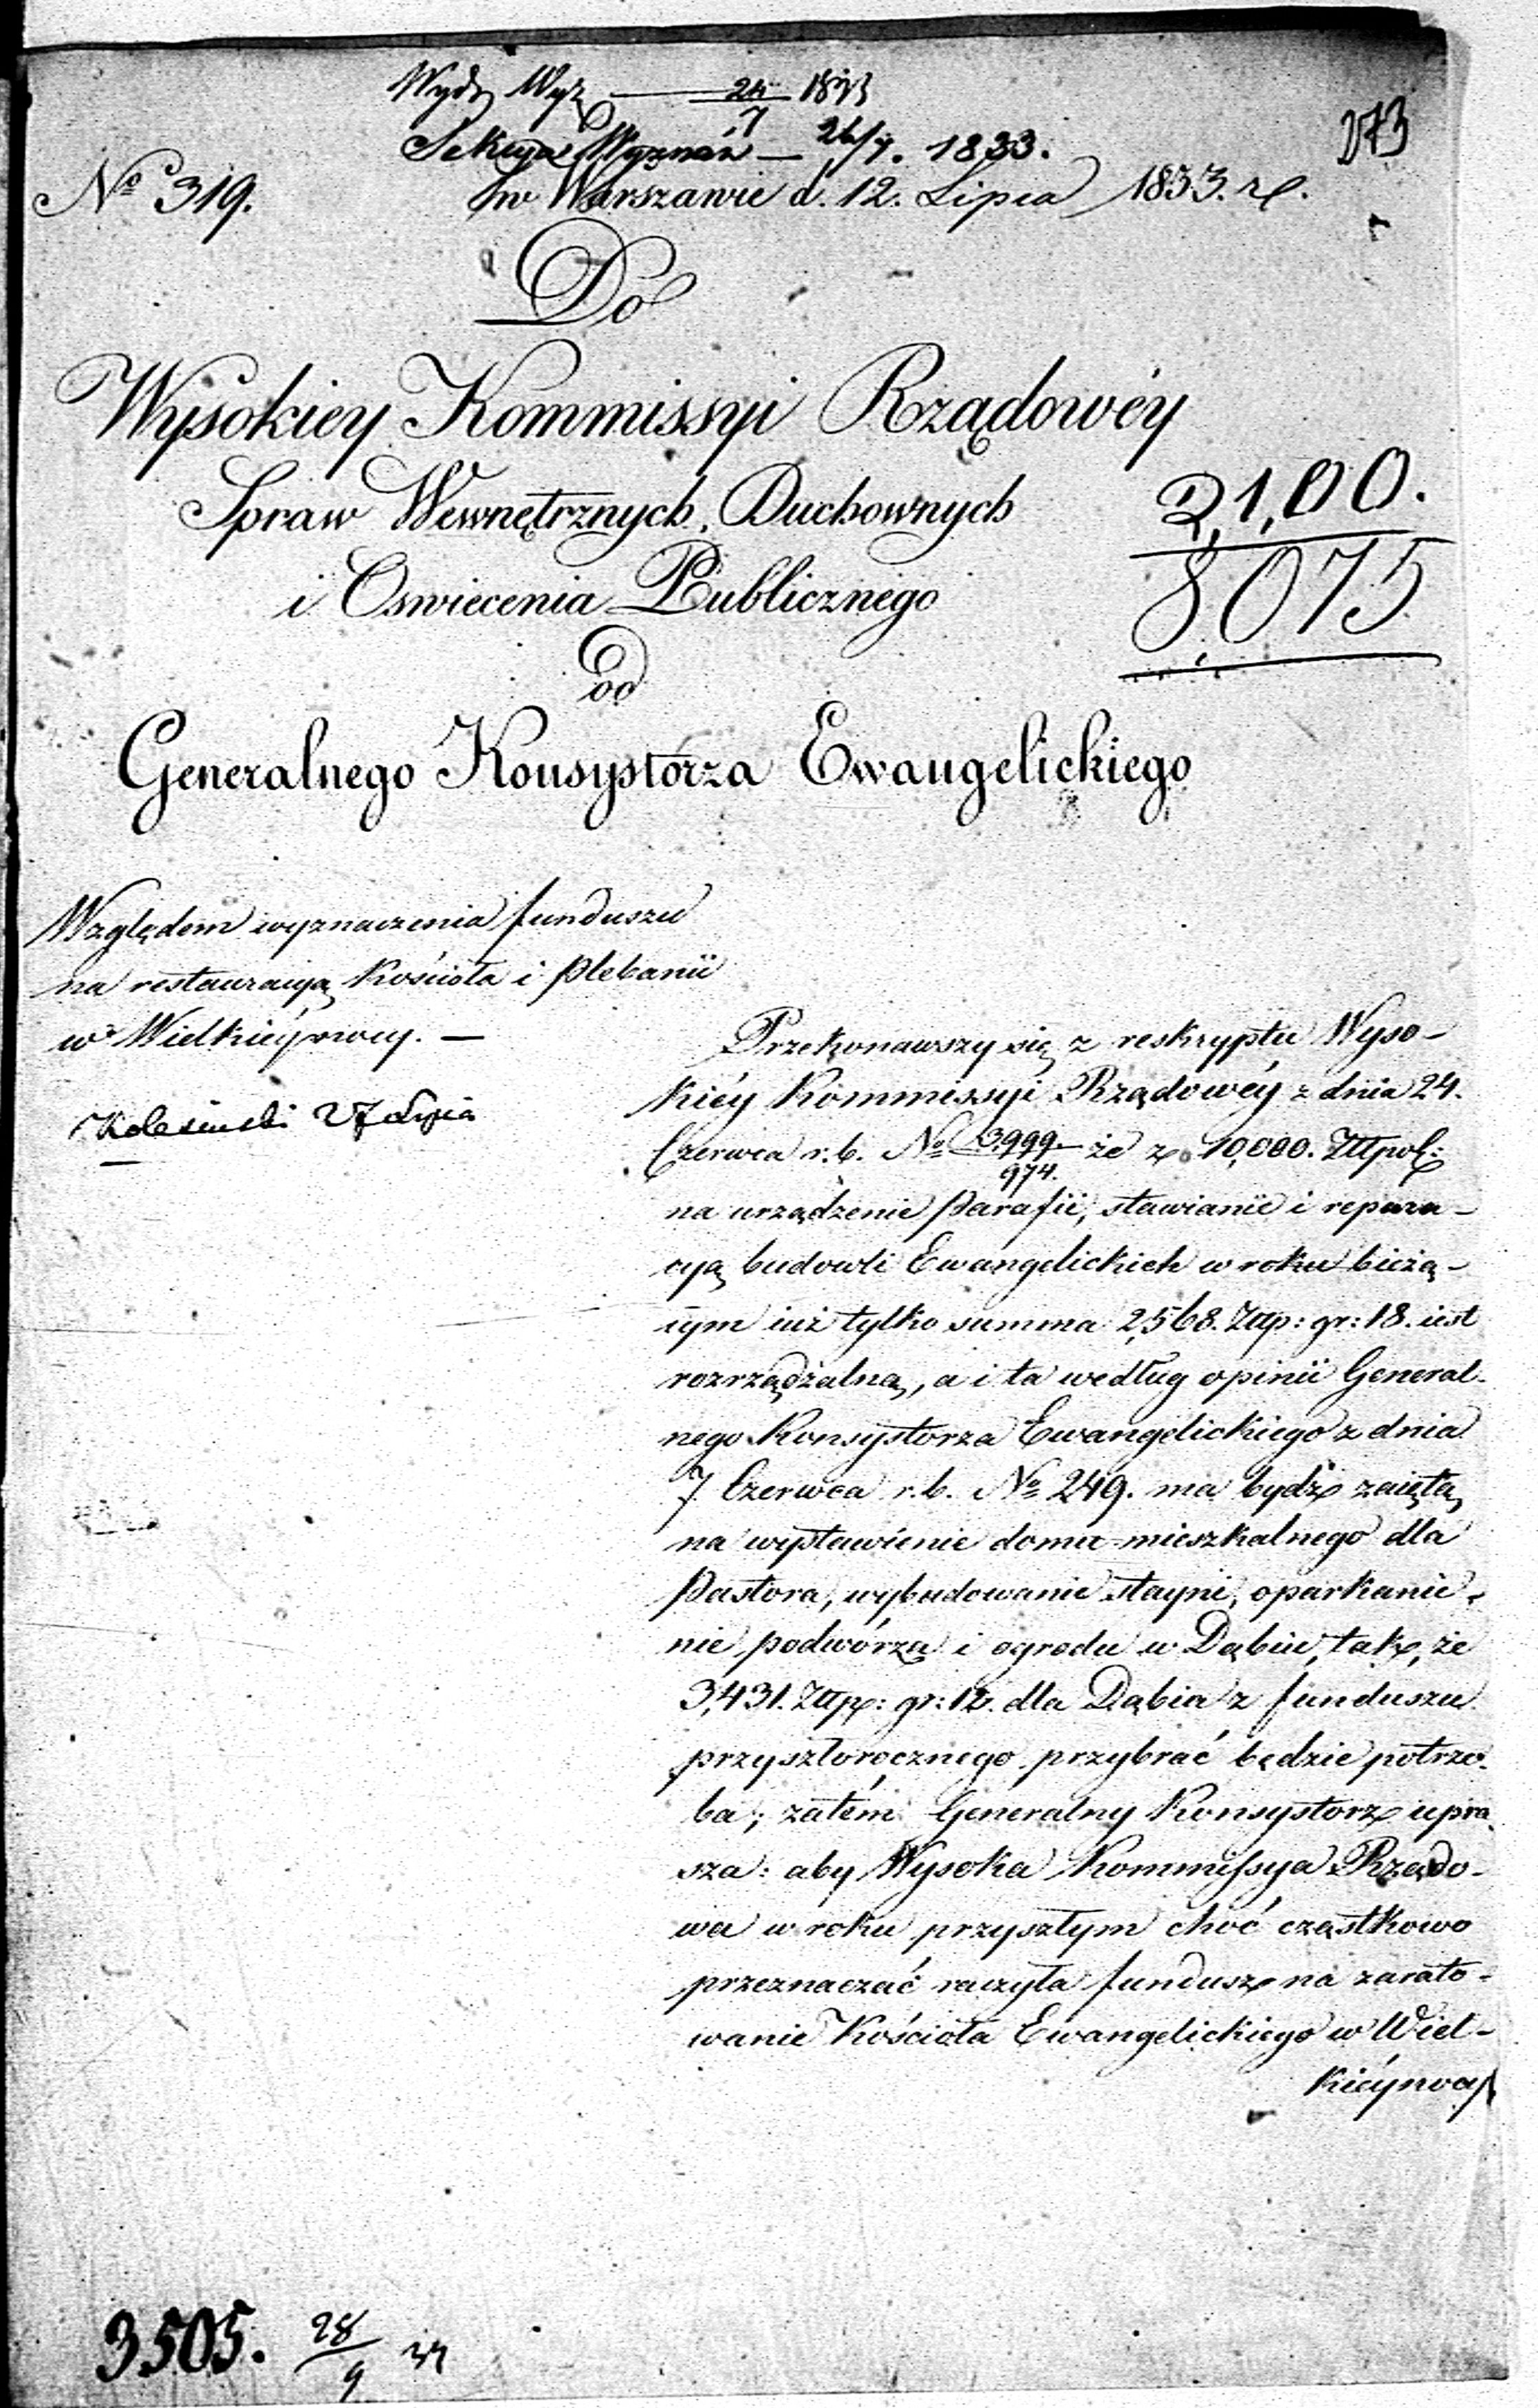 Wydz Wyz — 24/7 1833
Sekcya Wyznań — 26/7. 1833.
273
No 319.
w Warszawie d. 12. Lipca 1833. r.
Do
Wysokiey Kommissyi Rządowéy
Spraw Wewnętrznych, Duchownych
i Oswiecenia Publicznego
2,100.
8,075
od
Generalnego Konsystorza Ewangelickiego
Względem wyznaczenia funduszu
na restauracyą Kościoła i Plebanii
w Wielkiéynocy. —
27 Lipca
Przekonawszy się z reskryptu Wyso-
kiéy Kommissyi Rządowéy z dnia 24.
Czerwca r. b. No 3,999/974. że z 10,000. Złtpol:
na urządzenie Parafii, stawianie i repera-
cyą budowli Ewangelickich w roku bieżą-
cym iuż tylko summa 2,568. Złtp: gr: 18. iest
rozrządzalną, a i ta według opinii General-
nego Konsystorza Ewangelickiego z dnia
7. Czerwca r. b. No 249. ma bydź zaiętą
na wystawienie domu mieszkalnego dla
Pastora, wybudowanie stayni, oparkanie-
nie podwórza i ogrodu w Dąbiu, tak, że
3,431. Złtp: gr: 12. dla Dąbia z funduszu
przyszłorocznego przybrać będzie potrze-
ba; zatém Generalny Konsystorz upra-
sza: aby Wysoka Kommissya Rządo-
wa w roku przyszłym choć cząstkowo
przeznaczać raczyła fundusz na zarato-
wanie Kościoła Ewangelickiego w Wiel-
kiéynocy
3505. 28/9 33